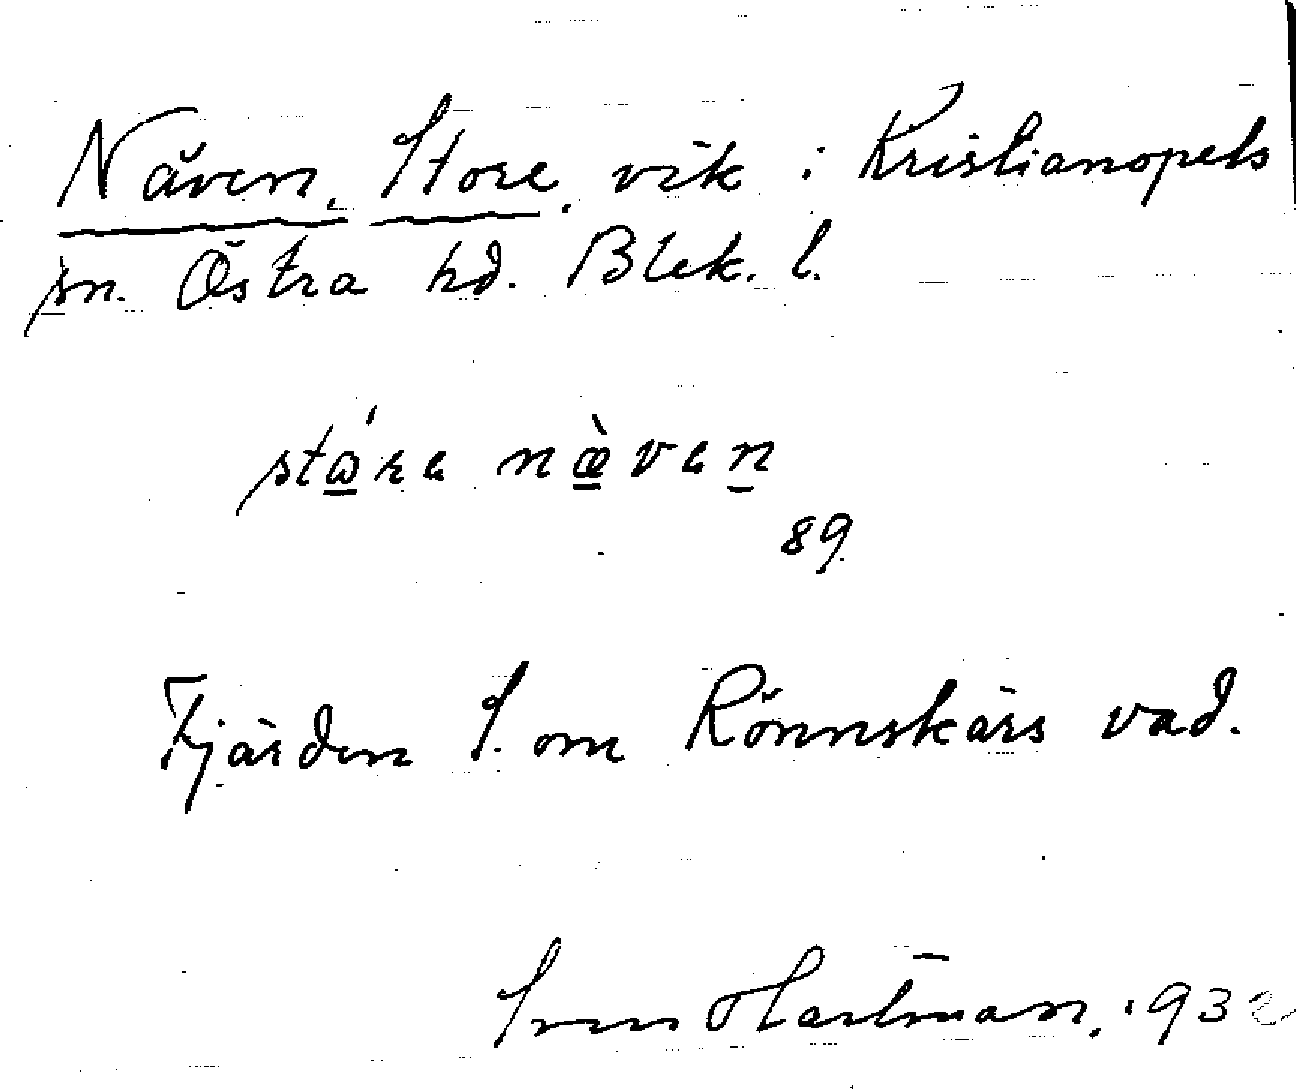 Näven, Store, vik i Kristianopels
sn. Östra hd. Blek. l.
stɷ́rɐ næ̀vɐn
89
Fjärden S. om Rönnskärs vad.
Sven Hartman, 1932